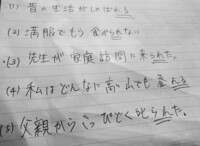 (1) 昔の生活がしのばれる
(2) 満腹でもう食べられない
(3) 先生が家庭訪問に来られた。
(4) 私はどんなに高い山でも登れる
(5) 父親からこっぴどく叱られた。